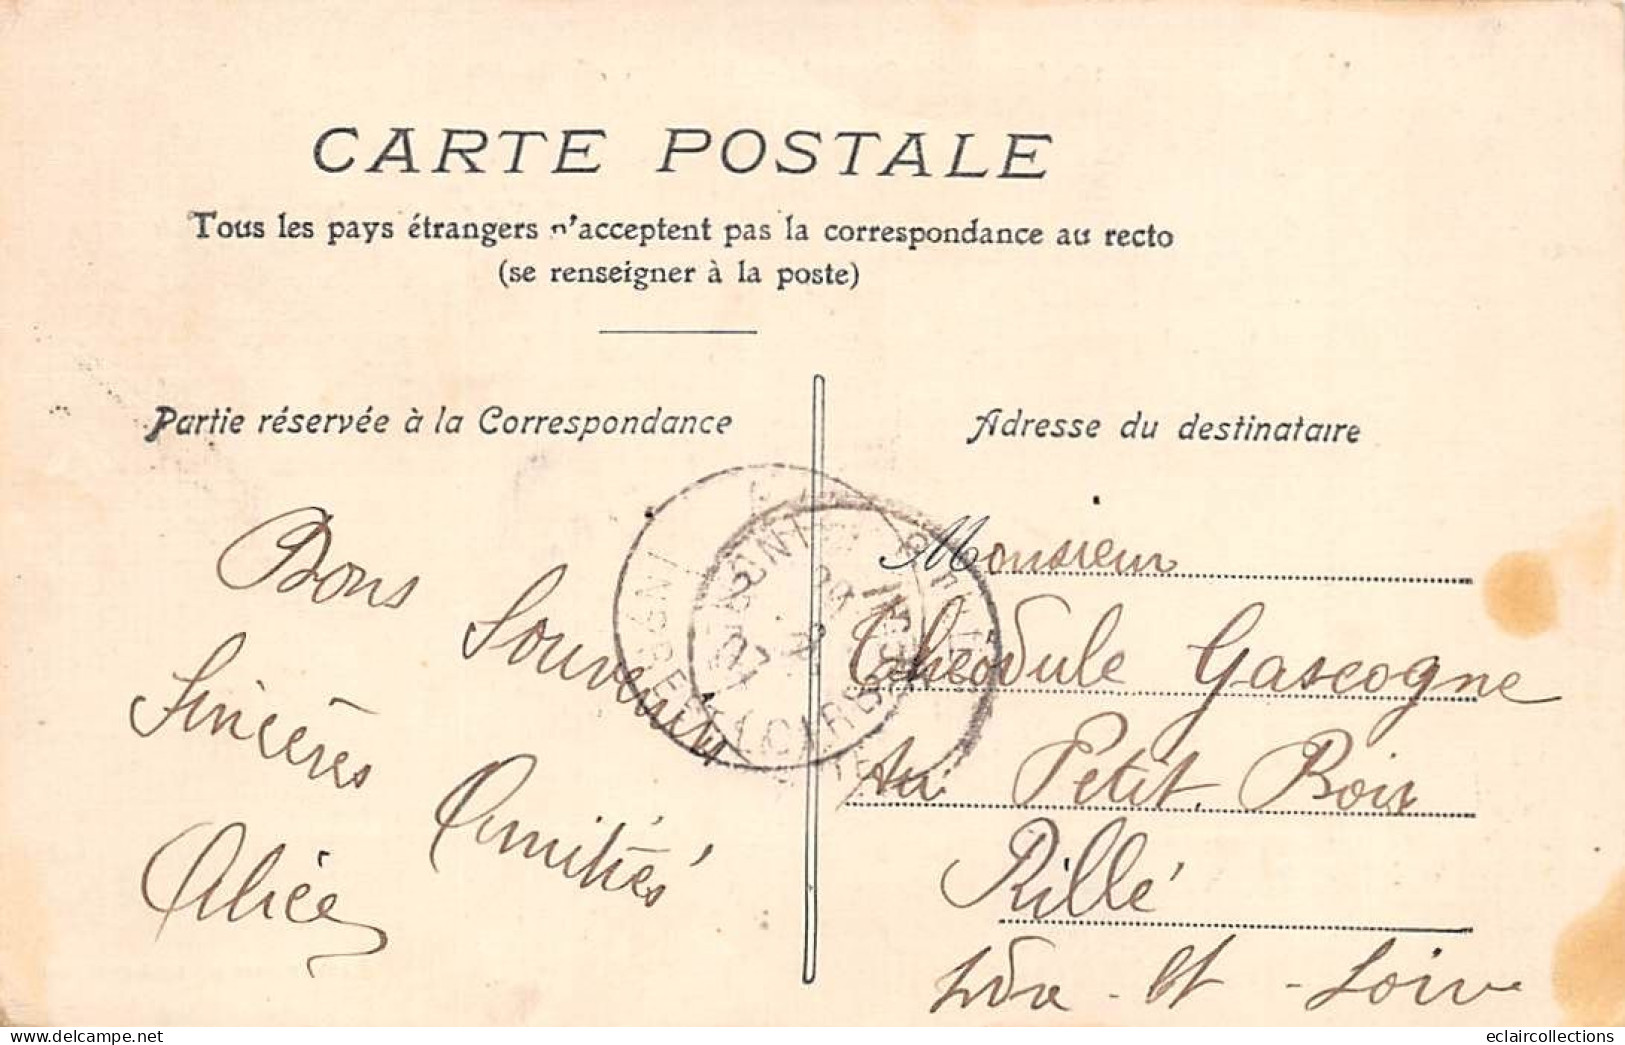 CARTE POSTALE
Tous les pays étrangers n'acceptent pas la correspondance au recto
(se renseigner à la poste)
Partie réservée à la Correspondance
Bons Souvenirs
Sincères Amitiés
Alice
Adresse du destinataire
Monsieur
Théodule Gascogne
Au Petit Bois
Rillé
Indre-et-Loire
eclaircollections